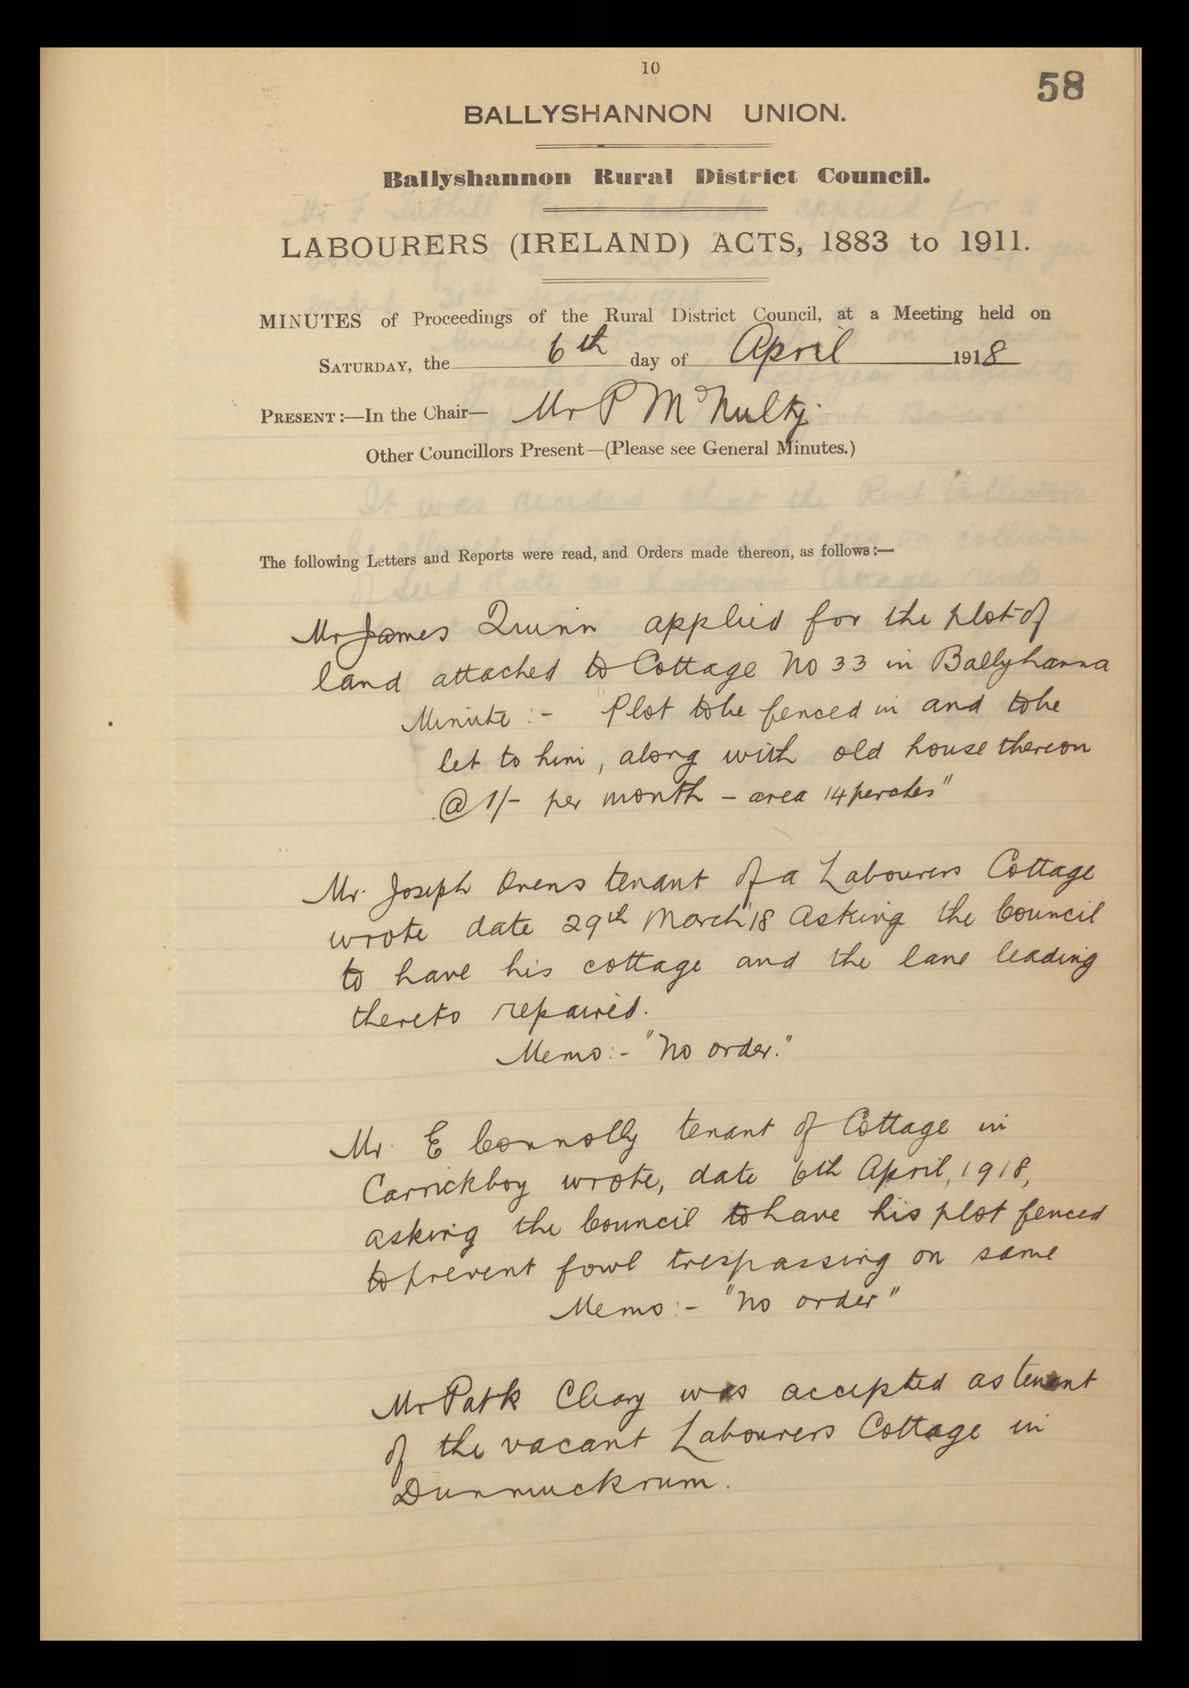 10
58
BALLYSHANNON UNION.
Ballyshannon Rural District Council.
LABOURERS (IRELAND) ACTS, 1883 to 1911.
MINUTES of Proceedings of the Rural District Council, at a Meeting held on
SATURDAY, the 6th day of April 1918
PRESENT:—In the Chair— Mr P McNulty.
Other Councillors Present—(Please see General Minutes.)
The following Letters and Reports were read, and Orders made thereon, as follows:—
Mr James Quinn applied for the plot of
land attached to Cottage No 33 in Ballyhanna
Minute :- "Plot to be fenced in and to be
let to him, along with old house thereon
@ 1/- per month - area 14 perches"
Mr. Joseph Ovens tenant of a Labourers Cottage
wrote date 29th March '18 asking the Council
to have his cottage and the lane leading
thereto repaired.
Memo:- "No order."
Mr. E Connolly tenant of Cottage in
Carrickboy wrote, date 6th April, 1918,
asking the Council to have his plot fenced
to prevent fowl trespassing on same
Memo:- "No order"
Mr Patk Cleary was accepted as tenant
of the vacant Labourers Cottage in
Dunmuckrum.